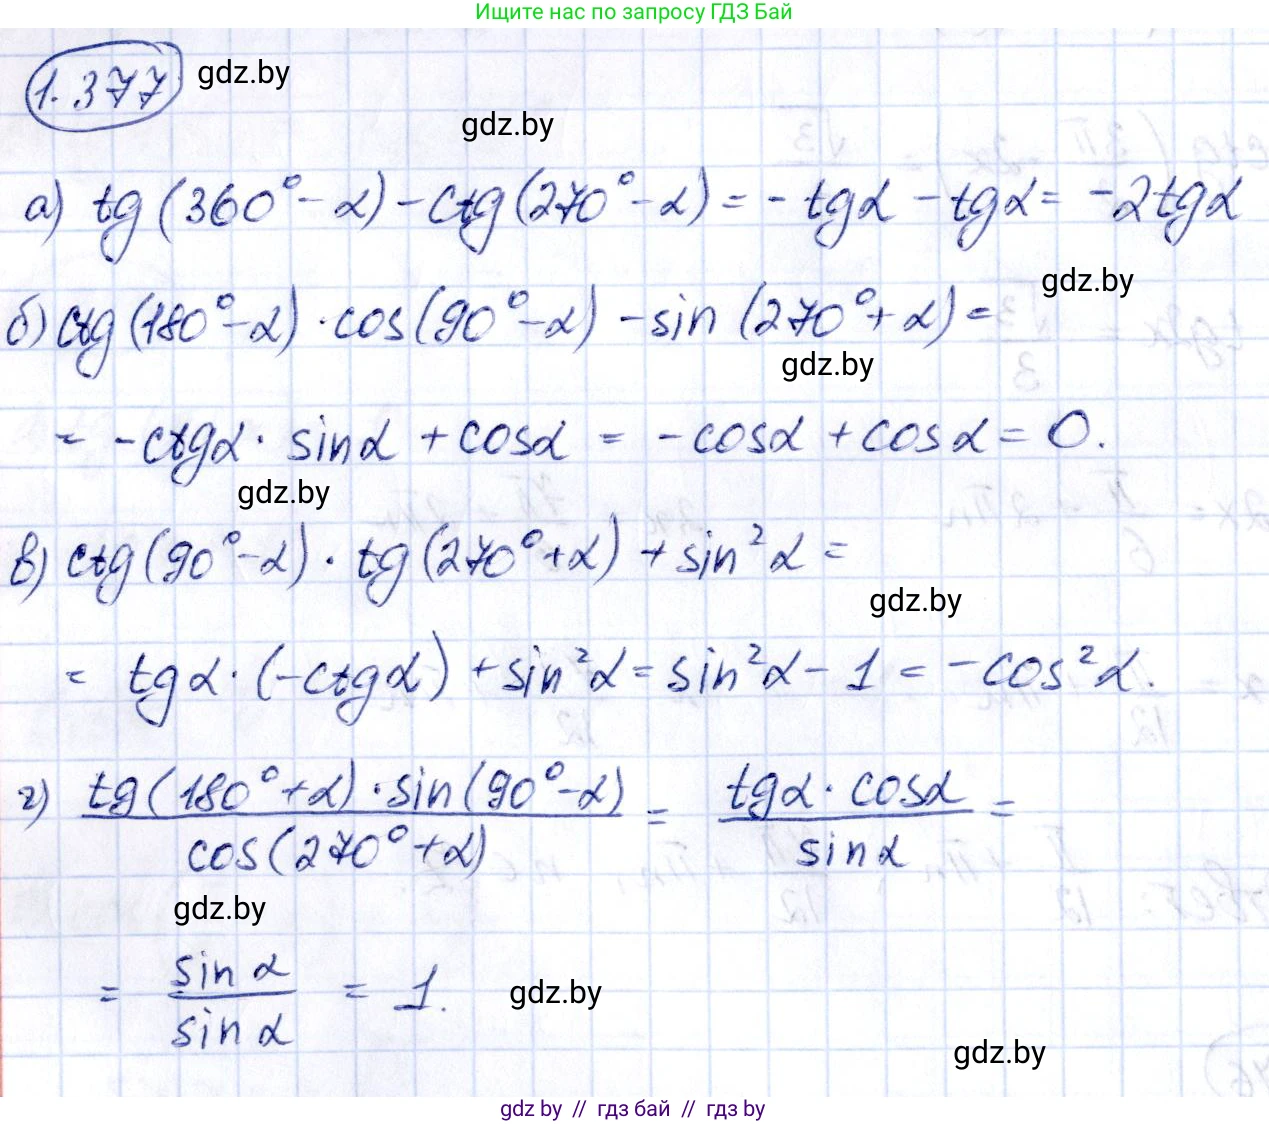 Ищите нас по запросу ГДЗ Бай
1.377 gdz.by
gdz.by
а) tg(360°-α) - ctg(270°-α) = -tgα - tgα = -2tgα
gdz.by
б) ctg(180°-α)·cos(90°-α) - sin(270°+α) =
gdz.by
= -ctgα · sinα + cosα = -cosα + cosα = 0.
gdz.by
в) ctg(90°-α)·tg(270°+α) + sin²α =
gdz.by
= tgα·(-ctgα) + sin²α = sin²α - 1 = -cos²α.
г) tg(180°+α)·sin(90°-α) / cos(270°+α) = tgα·cosα / sinα =
gdz.by
= sinα / sinα = 1. gdz.by
gdz.by
gdz by // гдз бай // gdz by